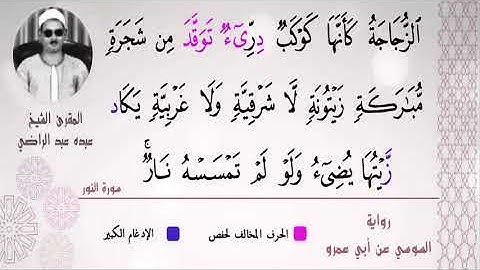 ٱلزُّجَاجَةُ كَأَنَّهَا كَوْكَبٌ دِرِّىٓءٌ تَوَقَّدَ مِن شَجَرَةٍ
مُّبَٰرَكَةٍ زَيْتُونَةٍ لَّا شَرْقِيَّةٍ وَلَا غَرْبِيَّةٍ يَكَاد
زَّيْتُهَا يُضِىٓءُ وَلَوْ لَمْ تَمْسَسْهُ نَارٌۚ
المقرئ الشيخ
عبده عبد الراضي
سورة النور
رواية
السوسي عن أبي عمرو
الحرف المخالف لحفص
الإدغام الكبير